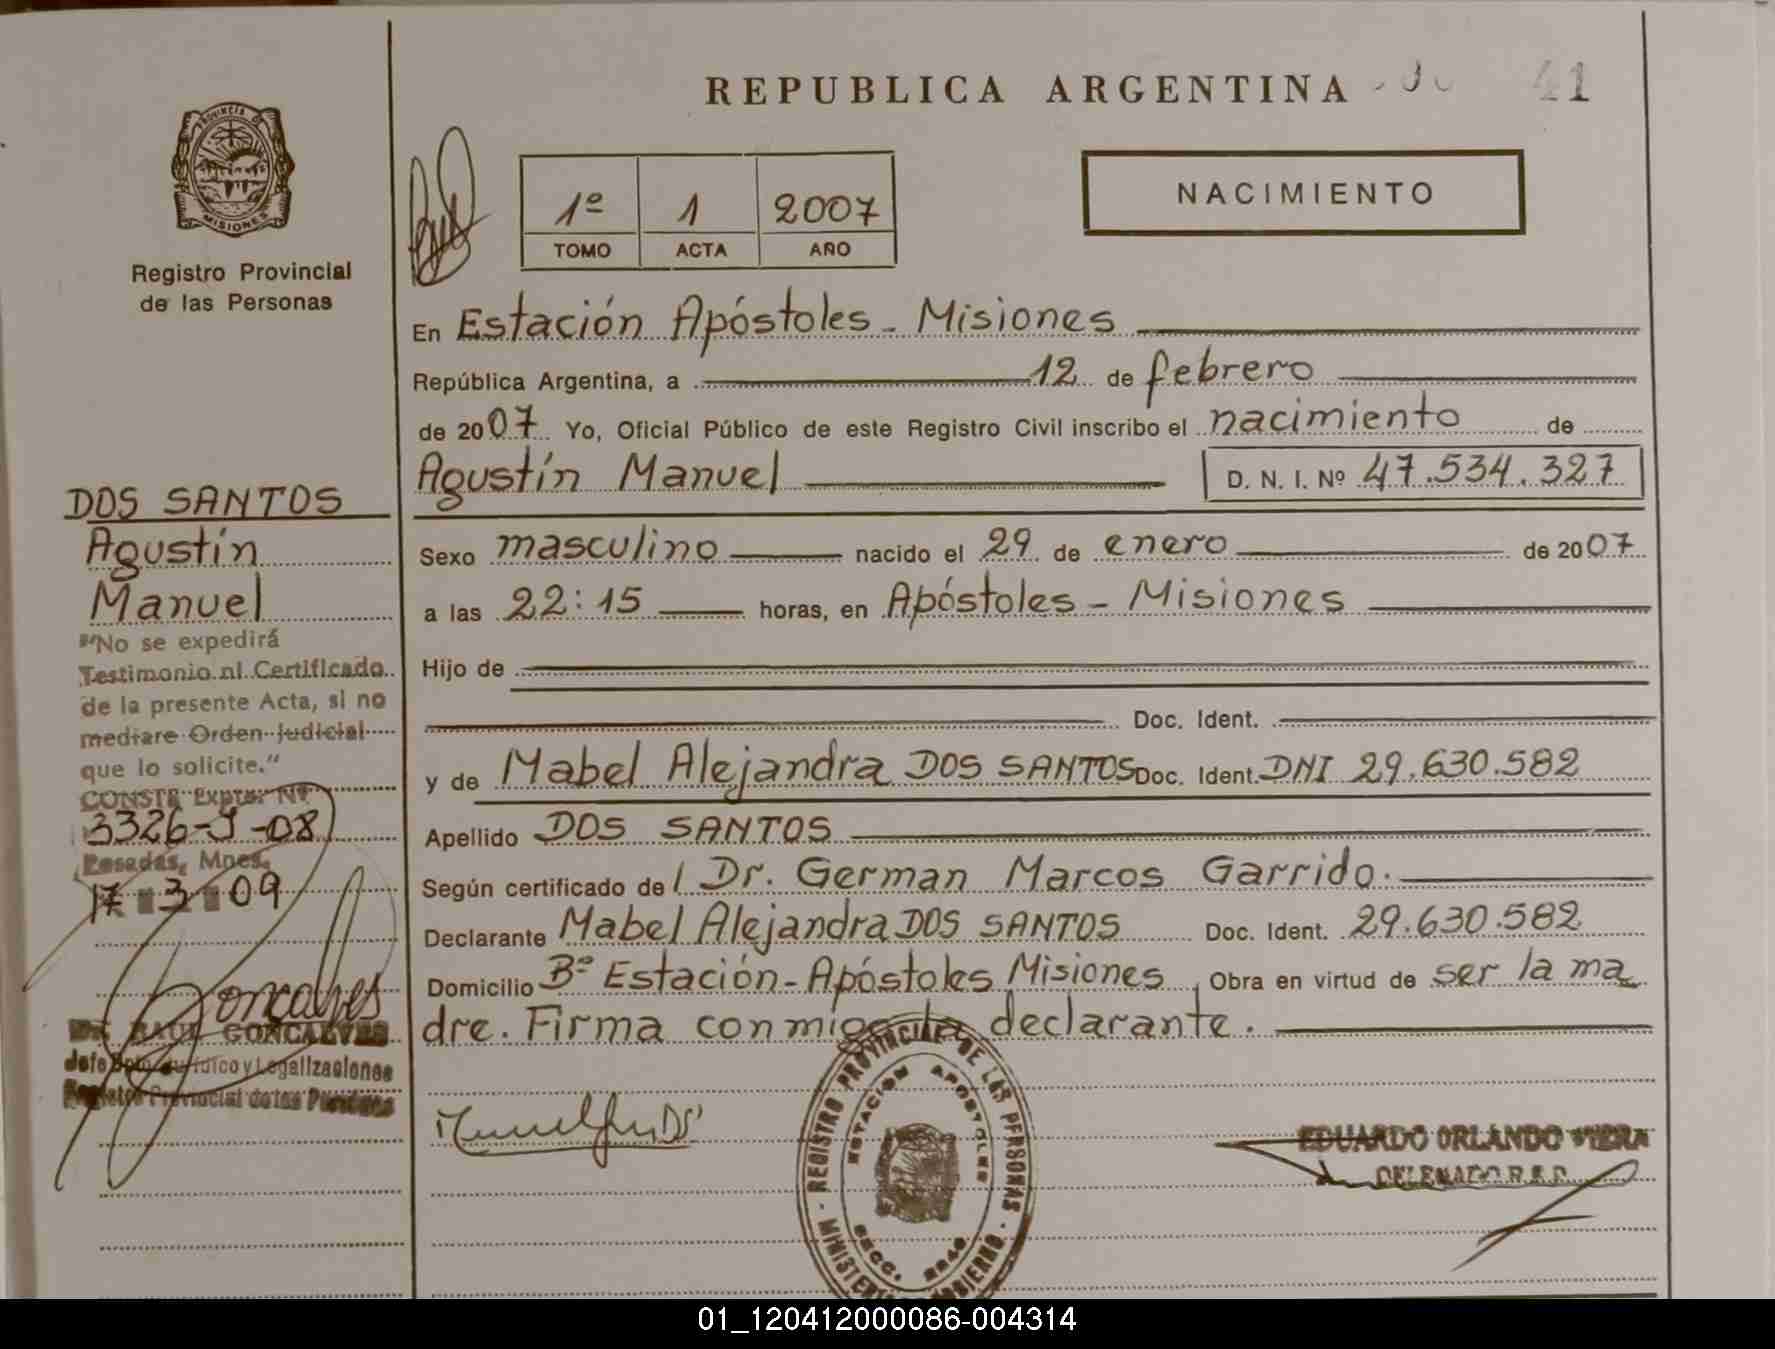 REPUBLICA ARGENTINA
41
PROVINCIA DE MISIONES
Registro Provincial
de las Personas
1º 1 2007
TOMO ACTA AÑO
NACIMIENTO
En Estación Apóstoles - Misiones
República Argentina, a 12 de febrero
de 2007 Yo, Oficial Público de este Registro Civil inscribo el nacimiento de
Agustín Manuel D. N. I. Nº 47.534.327
Sexo masculino nacido el 29 de enero de 2007
a las 22:15 horas, en Apóstoles - Misiones
Hijo de
Doc. Ident.
y de Mabel Alejandra DOS SANTOS Doc. Ident. DNI 29.630.582
Apellido DOS SANTOS
Según certificado de l Dr. German Marcos Garrido.
Declarante Mabel Alejandra DOS SANTOS Doc. Ident. 29.630.582
Domicilio Bº Estación - Apóstoles Misiones, Obra en virtud de ser la ma
dre. Firma conmigo la declarante.
DOS SANTOS
Agustín
Manuel
"No se expedirá
Testimonio ni Certificado
de la presente Acta, si no
mediare Orden judicial
que lo solicite."
CONSTE Expte. Nº
3326-J-08
Posadas, Mnes.
17 3 09
Goncalves
DR. RAUL GONCALVES
Jefe Dpto. Jurídico y Legalizaciones
Registro Provincial de las Personas
REGISTRO PROVINCIAL DE LAS PERSONAS
MINISTERIO GOBIERNO
ESTACION APOSTOLES
SECC.
EDUARDO ORLANDO VIERA
DELEGADO R.P.P.
01_120412000086-004314